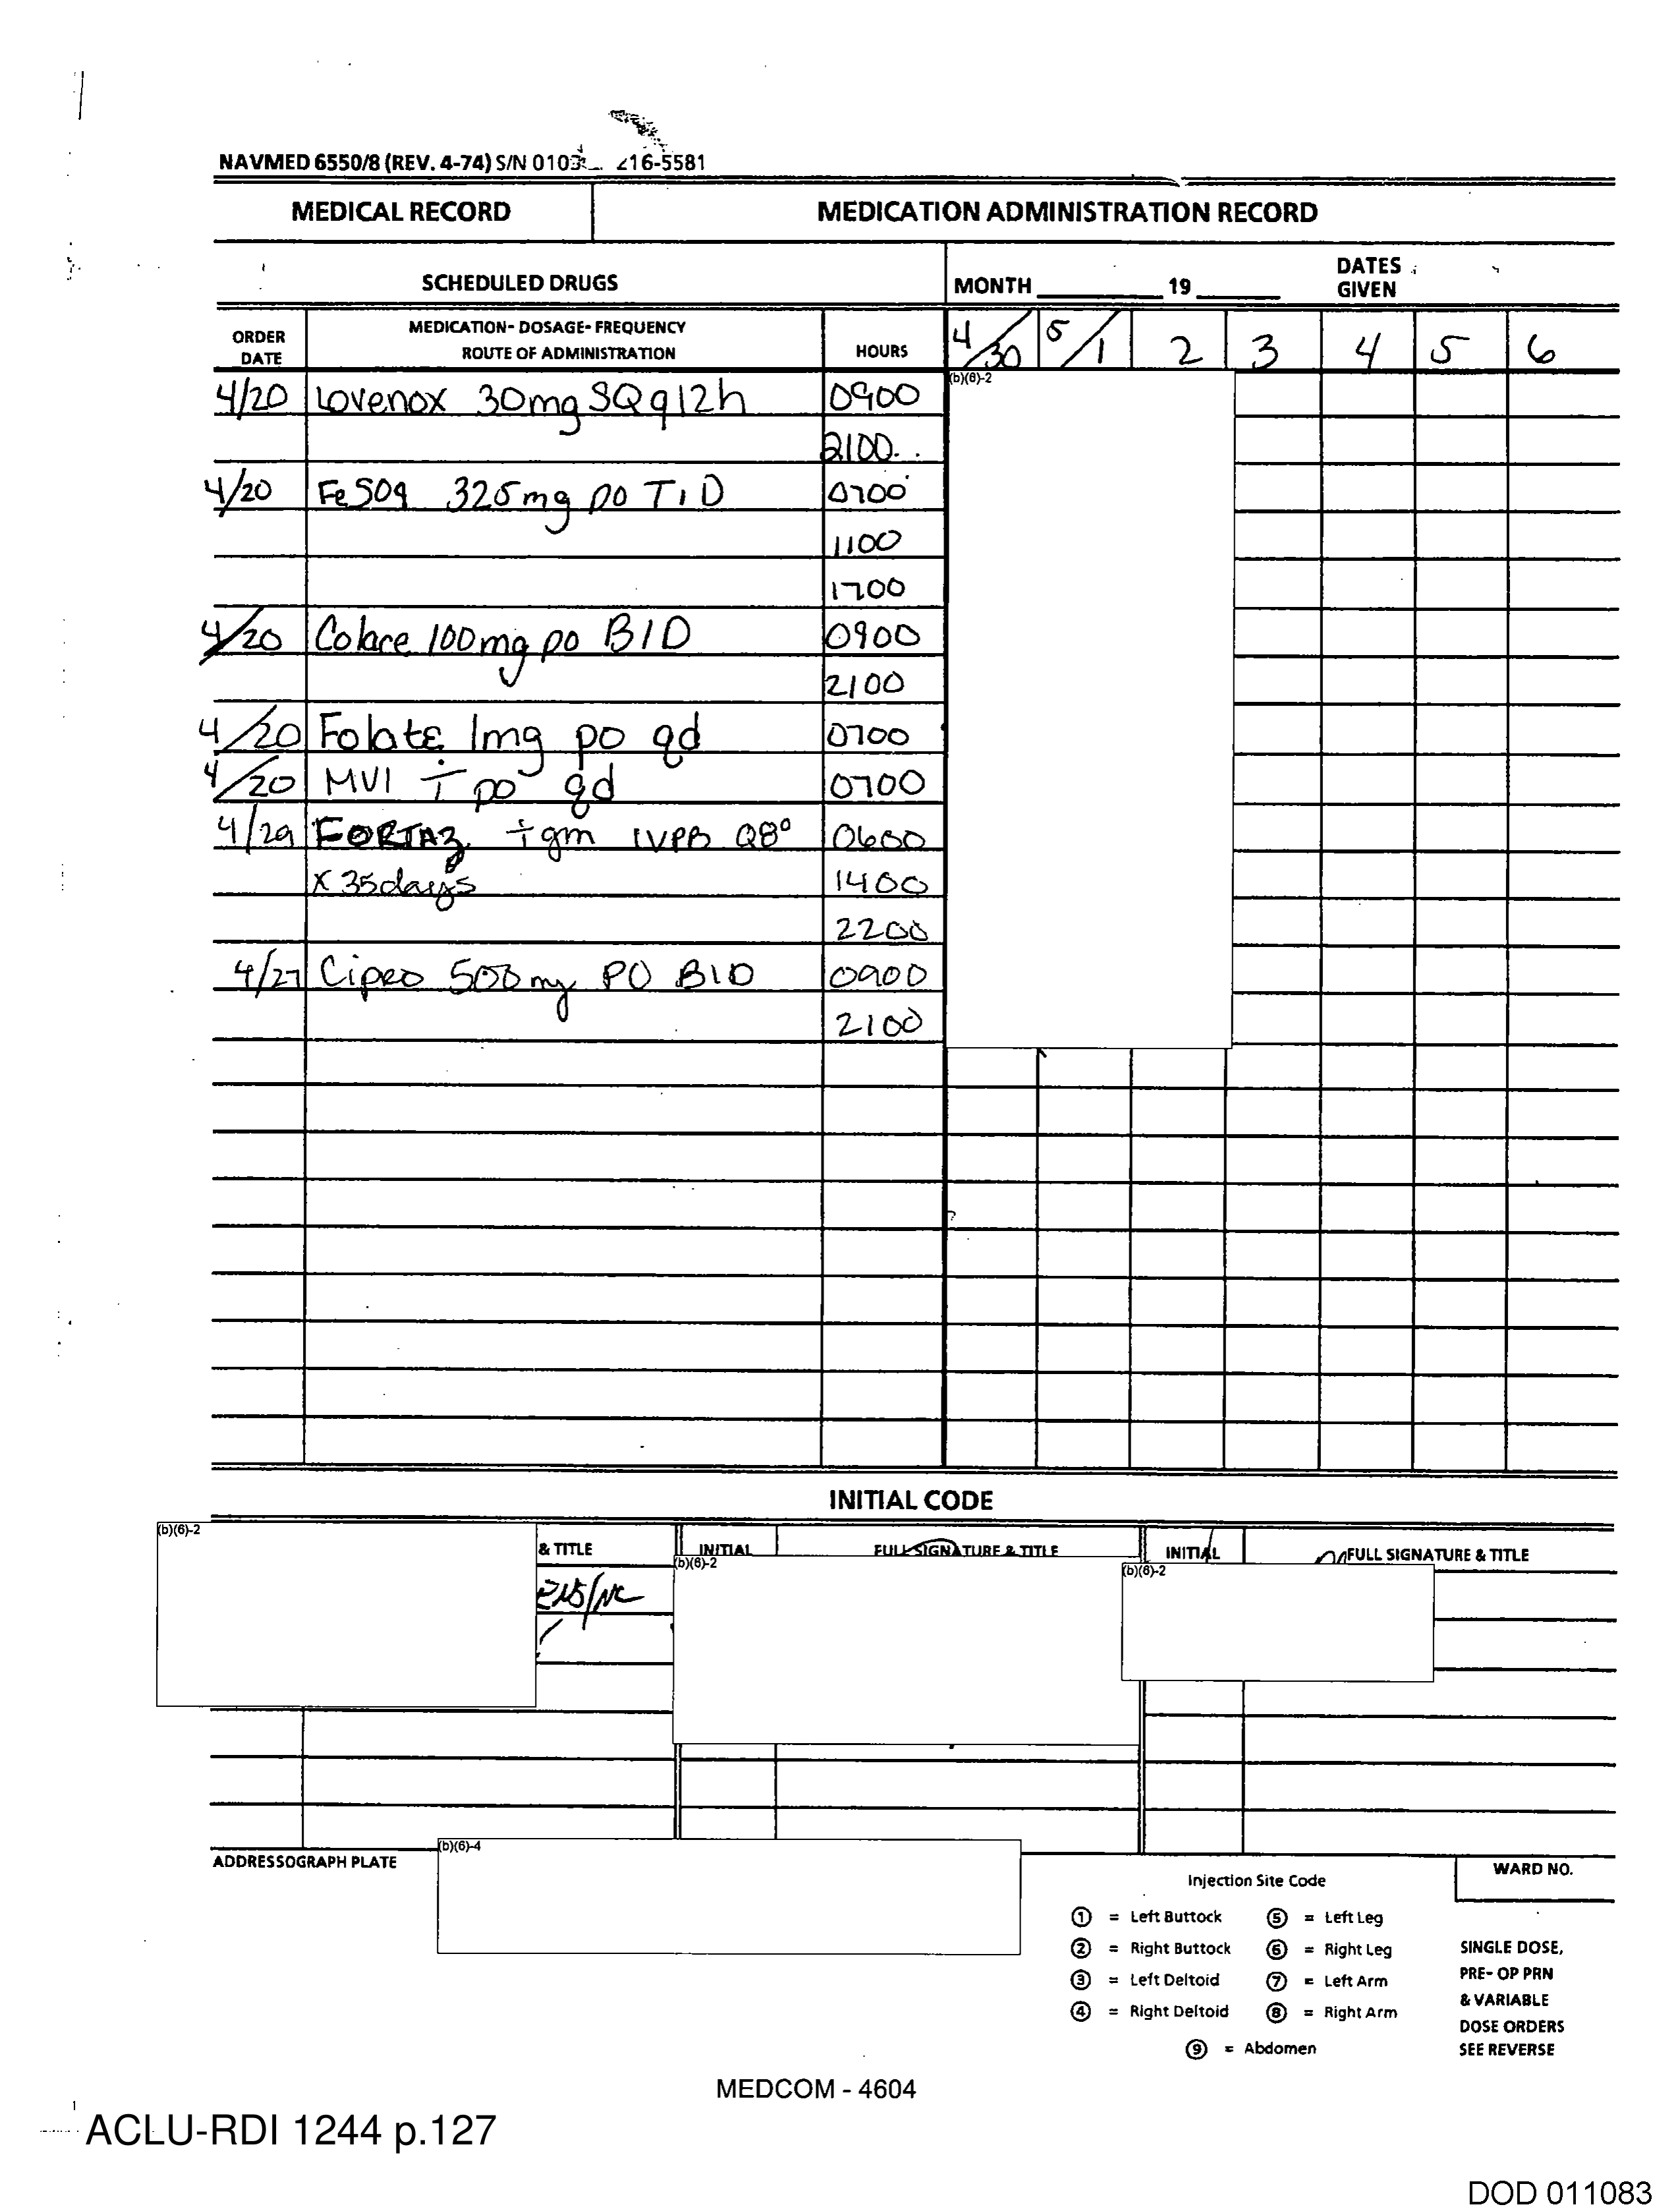 NAVMED 6550/8 (REV. 4-74) S/N 0103 216-5581
MEDICAL RECORD MEDICATION ADMINISTRATION RECORD
SCHEDULED DRUGS MONTH 19 DATES GIVEN
ORDER DATE MEDICATION- DOSAGE- FREQUENCY ROUTE OF ADMINISTRATION HOURS 4/30 5/1 2 3 4 5 6
(b)(6)-2
4/20 Lovenox 30mg SQ q12h 0900
2100
4/20 FeSO4 325mg po TID 0700
1100
1700
4/20 Colace 100mg po BID 0900
2100
4/20 Folate 1mg po qd 0700
4/20 MVI i po qd 0700
4/29 FORTAZ i gm IVPB Q8° 0600
X 35 days 1400
2200
4/27 Cipro 500mg PO BID 0900
2100
INITIAL CODE
(b)(6)-2
& TITLE INITIAL FULL SIGNATURE & TITLE INITIAL FULL SIGNATURE & TITLE
(b)(6)-2
(b)(6)-2
(b)(6)-4
ADDRESSOGRAPH PLATE
WARD NO.
Injection Site Code
1 = Left Buttock 5 = Left Leg
2 = Right Buttock 6 = Right Leg
3 = Left Deltoid 7 = Left Arm
4 = Right Deltoid 8 = Right Arm
9 = Abdomen
SINGLE DOSE,
PRE- OP PRN
& VARIABLE
DOSE ORDERS
SEE REVERSE
MEDCOM - 4604
ACLU-RDI 1244 p.127
DOD 011083